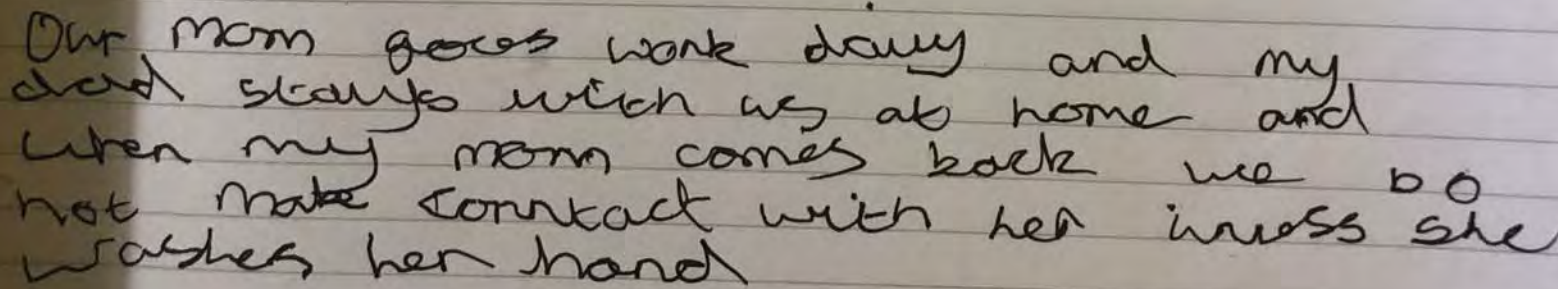 Our mom goes work daily and my
dad stays with us at home and
when my mom comes back we do
not make conntact with her inless she
washes her hand